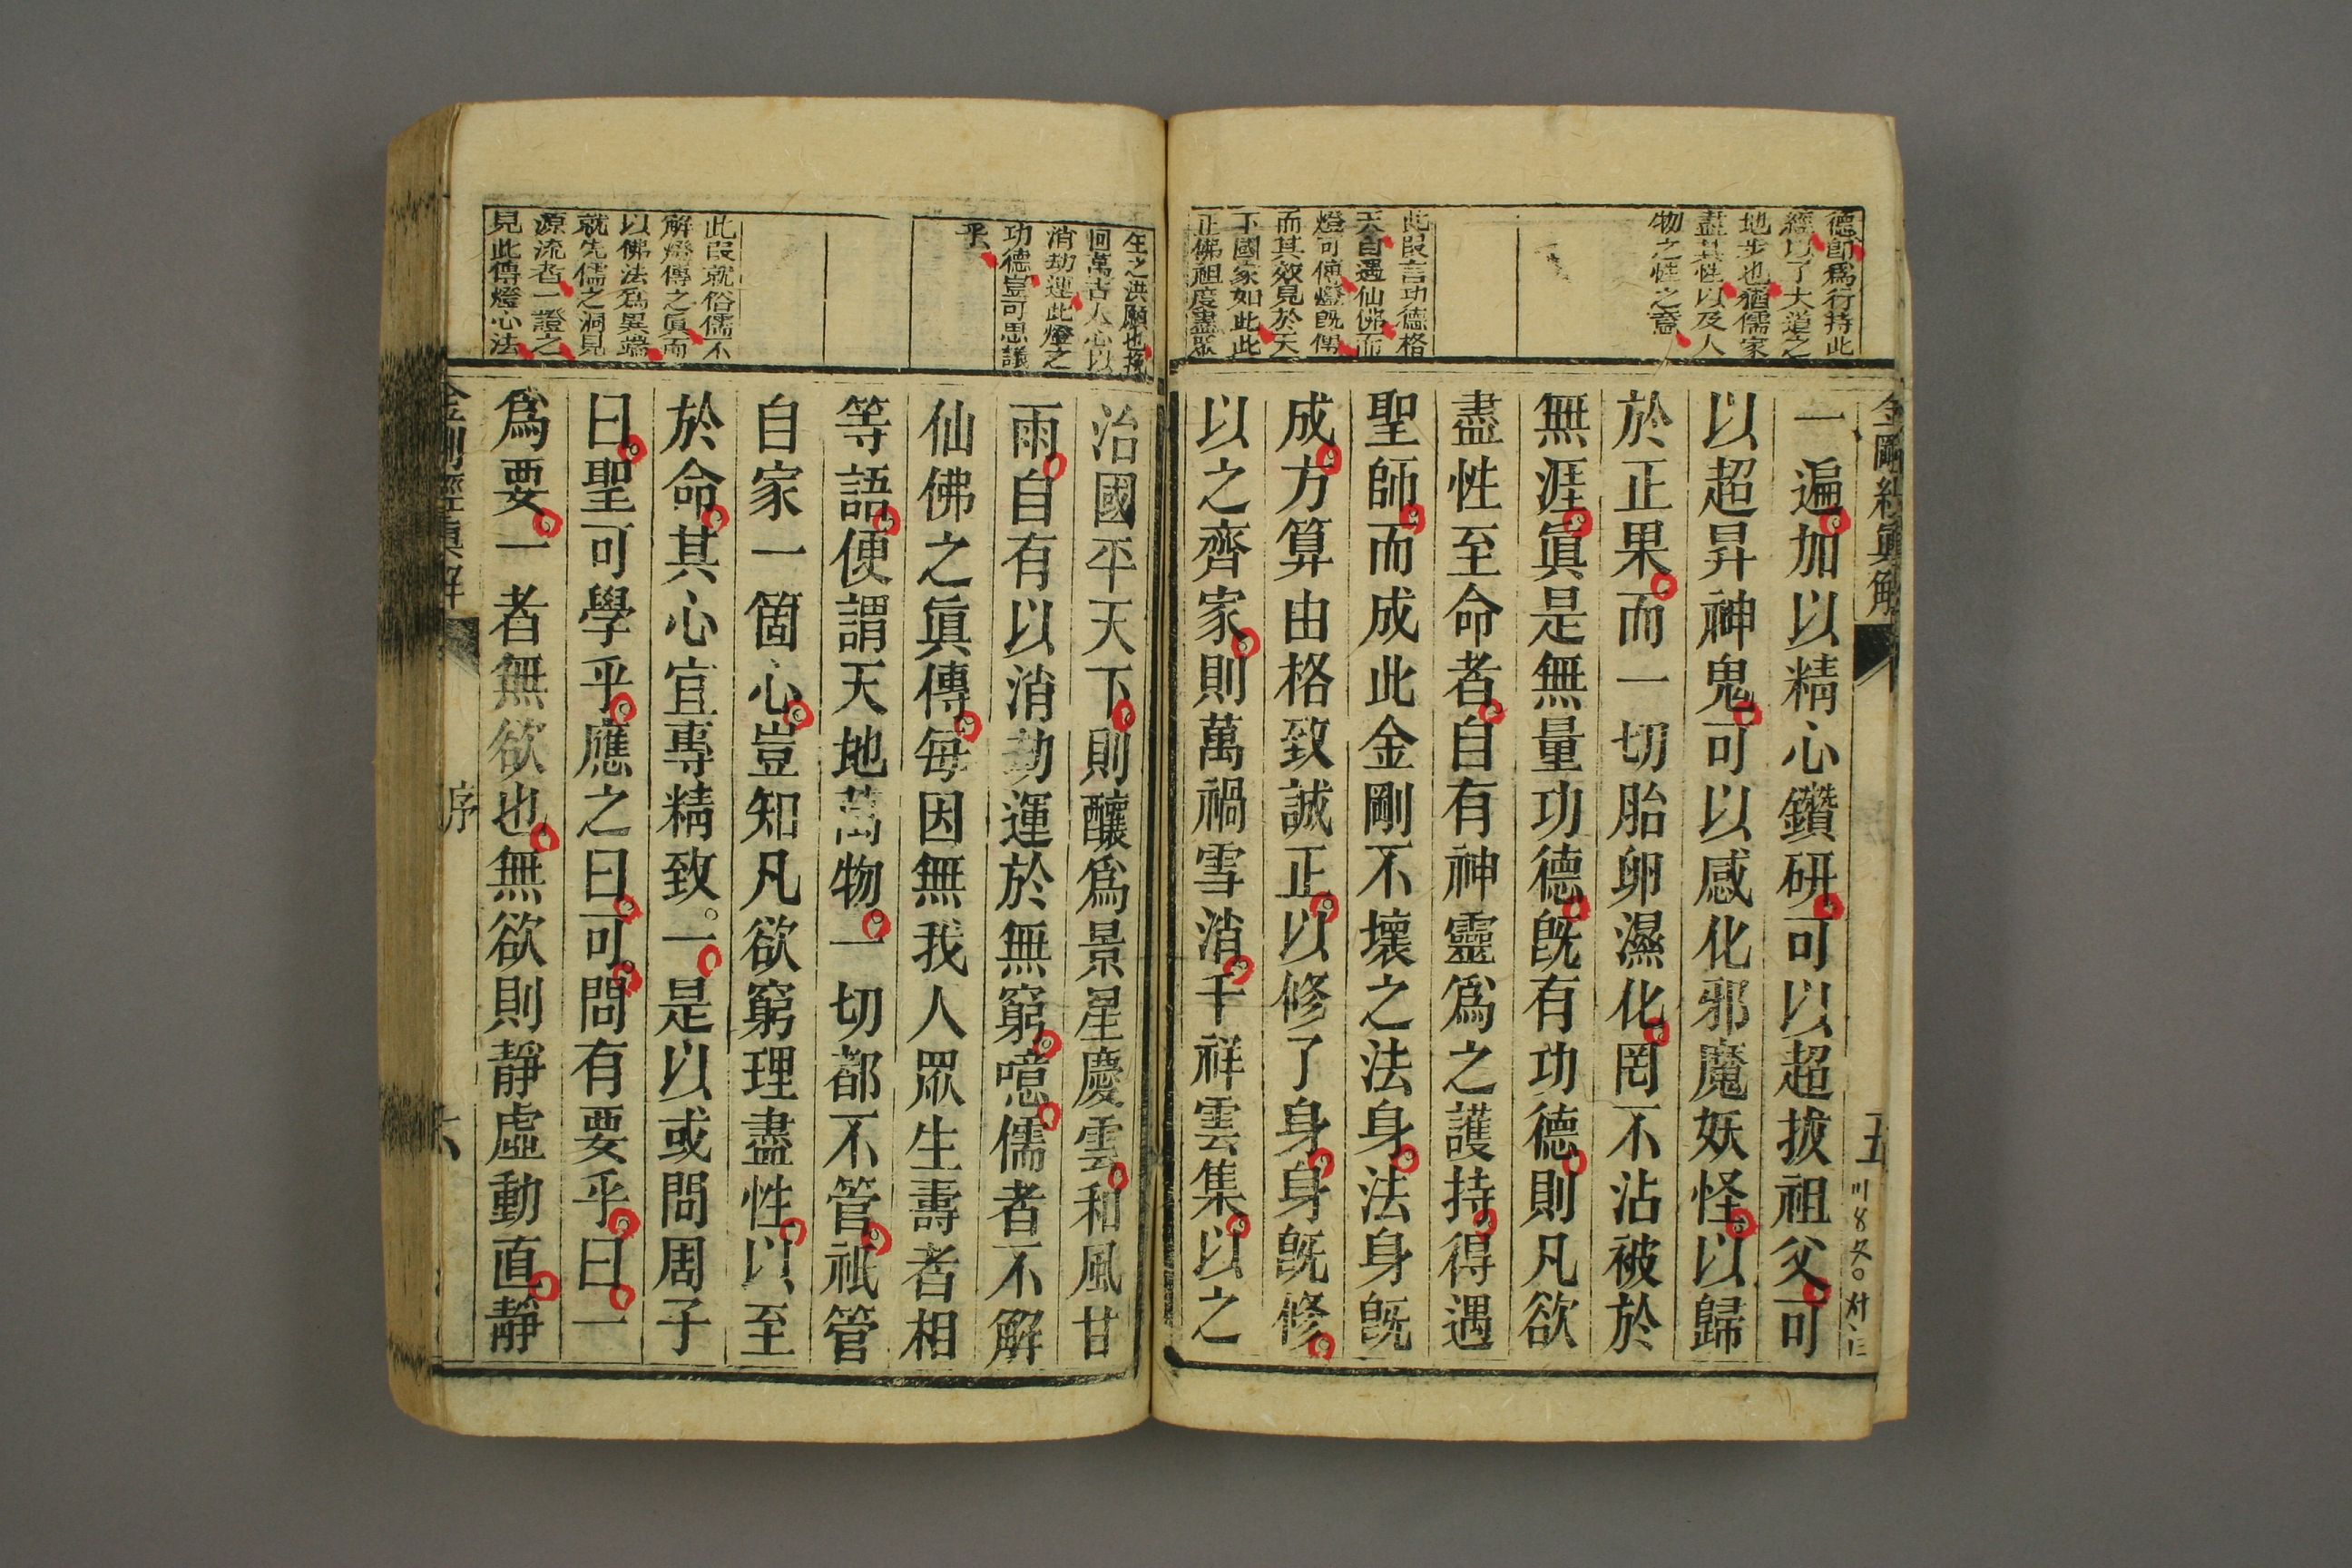 金剛經眞解
五
德卽爲行持此
經以了大道之
地步也猶儒家
盡其性以及人
物之性之意
此段言功德格
天自遇仙佛而
燈可傳燈旣傳
而其效見於天
下國家如此此
正佛祖度盡眾
一遍。加以精心鑽研。可以超拔祖父。可
以超昇神鬼。可以感化邪魔妖怪。以歸
於正果。而一切胎卵濕化。罔不沾被於
無涯。眞是無量功德。旣有功德。則凡欲
盡性至命者。自有神靈爲之護持。得遇
聖師。而成此金剛不壞之法身。法身旣
成。方算由格致誠正。以修了身。身旣修。
以之齊家。則萬禍雪消。千祥雲集。以之
生之洪願也挽
回萬古人心以
消劫運此燈之
功德豈可思議
乎
此段就俗儒不
解燈傳之眞而
以佛法爲異端
就先儒之洞見
源流者一證之
見此傳燈心法
治國平天下。則釀爲景星慶雲。和風甘
雨。自有以消劫運於無窮。噫。儒者不解
仙佛之眞傳。每因無我人眾生壽者相
等語。便謂天地萬物。一切都不管。祇管
自家一箇心。豈知凡欲窮理盡性。以至
於命。其心宜專精致。一。是以或問周子
曰。聖可學乎。應之曰。可。問有要乎。曰。一
爲要。一者無欲也。無欲則靜虛動直。靜
金剛經眞解
序
六